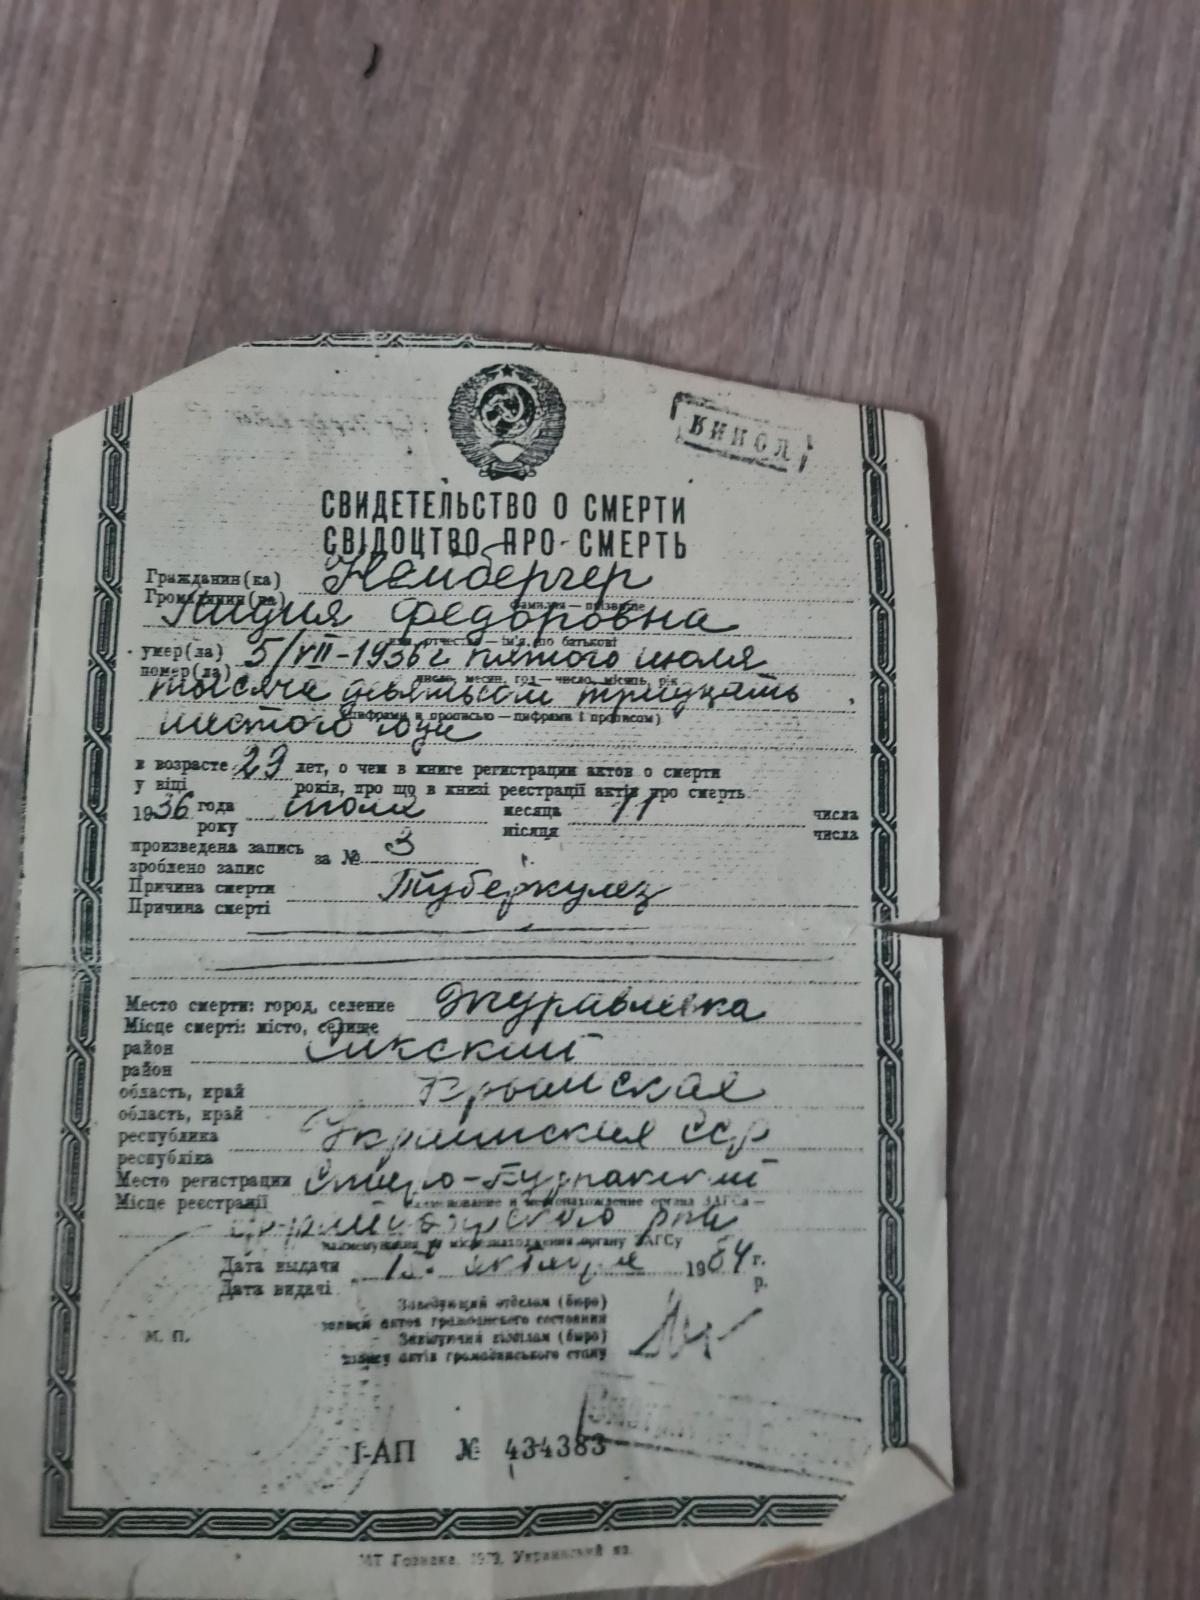 СВИДЕТЕЛЬСТВО О СМЕРТИ
СВІДОЦТВО ПРО СМЕРТЬ
Гражданин(ка) Нейбергер
Громадянин(ка)
фамилия — прізвище
Лидия Федоровна
имя, отчество — ім'я, по батькові
умер(ла) 5/VII-1936г пятого июля
помер(ла)
число, месяц, год — число, місяць, рік
тысяча девятьсот тридцать
(цифрами и прописью — цифрами і прописом)
шестого года
в возрасте 23 лет, о чем в книге регистрации актов о смерти
у віці років, про що в книзі реєстрації актів про смерть
1936 года июля месяца 11 числа
року місяця числа
произведена запись за № 3
зроблено запис
Причина смерти Туберкулез
Причина смерті
Место смерти: город, селение Журавлевка
Місце смерті: місто, селище
район
район
область, край Крымская
область, край
республика Украинская ССР
республіка
Место регистрации
Місце реєстрації
наименование и местонахождение органа ЗАГСа —
найменування та місцезнаходження органу ЗАГСу
Дата выдачи октября 1984 г.
Дата видачі р.
Заведующий отделом (бюро)
записи актов гражданского состояния
Завідуючий відділом (бюро)
запису актів громадянського стану
М. П.
I-АП № 434383
МТ Гознака. 1979. Украинский яз.